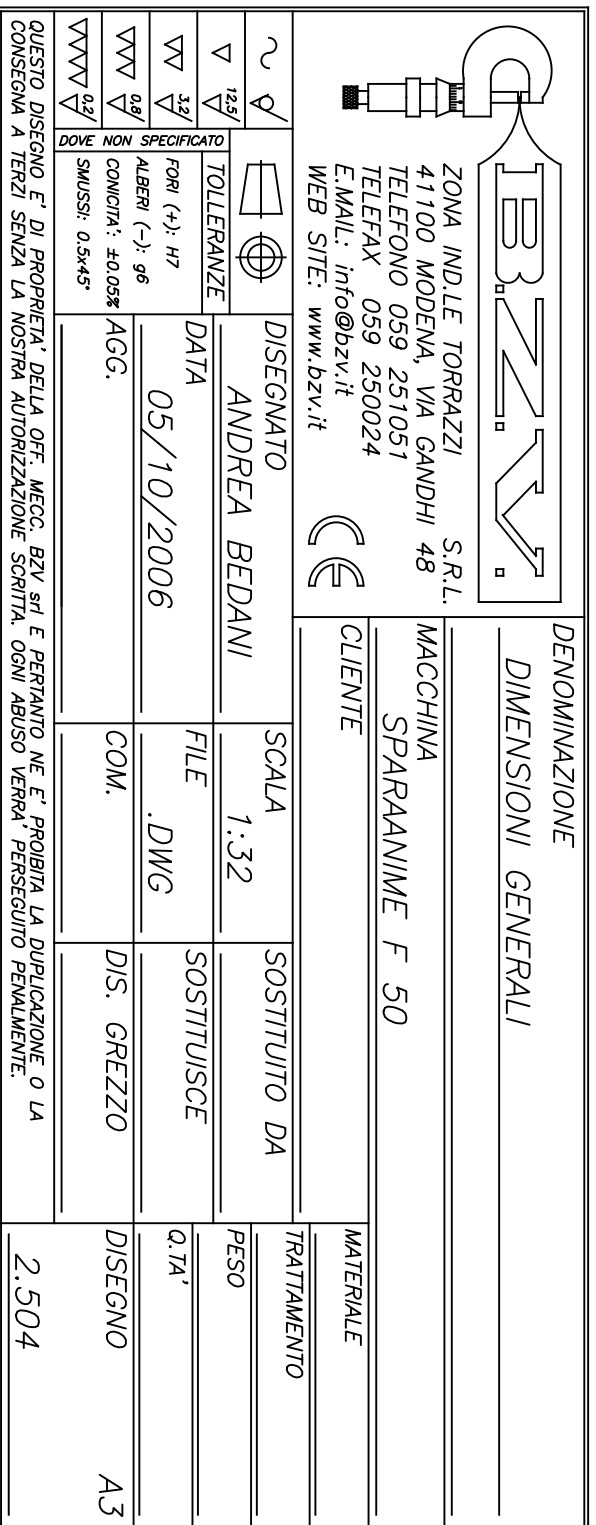 B.Z.V.
ZONA IND.LE TORRAZZI S.R.L.
41100 MODENA, VIA GANDHI 48
TELEFONO 059 251051
TELEFAX 059 250024
E.MAIL: info@bzv.it
WEB SITE: www.bzv.it
CE
DENOMINAZIONE
DIMENSIONI GENERALI
MACCHINA
SPARAANIME F 50
CLIENTE
MATERIALE
TRATTAMENTO
PESO
Q.TA'
DISEGNATO
ANDREA BEDANI
SCALA
1:32
SOSTITUITO DA
DATA
05/10/2006
FILE
.DWG
SOSTITUISCE
AGG.
COM.
DIS. GREZZO
DISEGNO
A3
2.504
12,5
3,2
0,8
0,2
DOVE NON SPECIFICATO
TOLLERANZE
FORI (+): H7
ALBERI (-): g6
CONICITA': ±0.05%
SMUSSI: 0.5x45°
QUESTO DISEGNO E' DI PROPRIETA' DELLA OFF. MECC. BZV srl E PERTANTO NE E' PROIBITA LA DUPLICAZIONE O LA
CONSEGNA A TERZI SENZA LA NOSTRA AUTORIZZAZIONE SCRITTA. OGNI ABUSO VERRA' PERSEGUITO PENALMENTE.